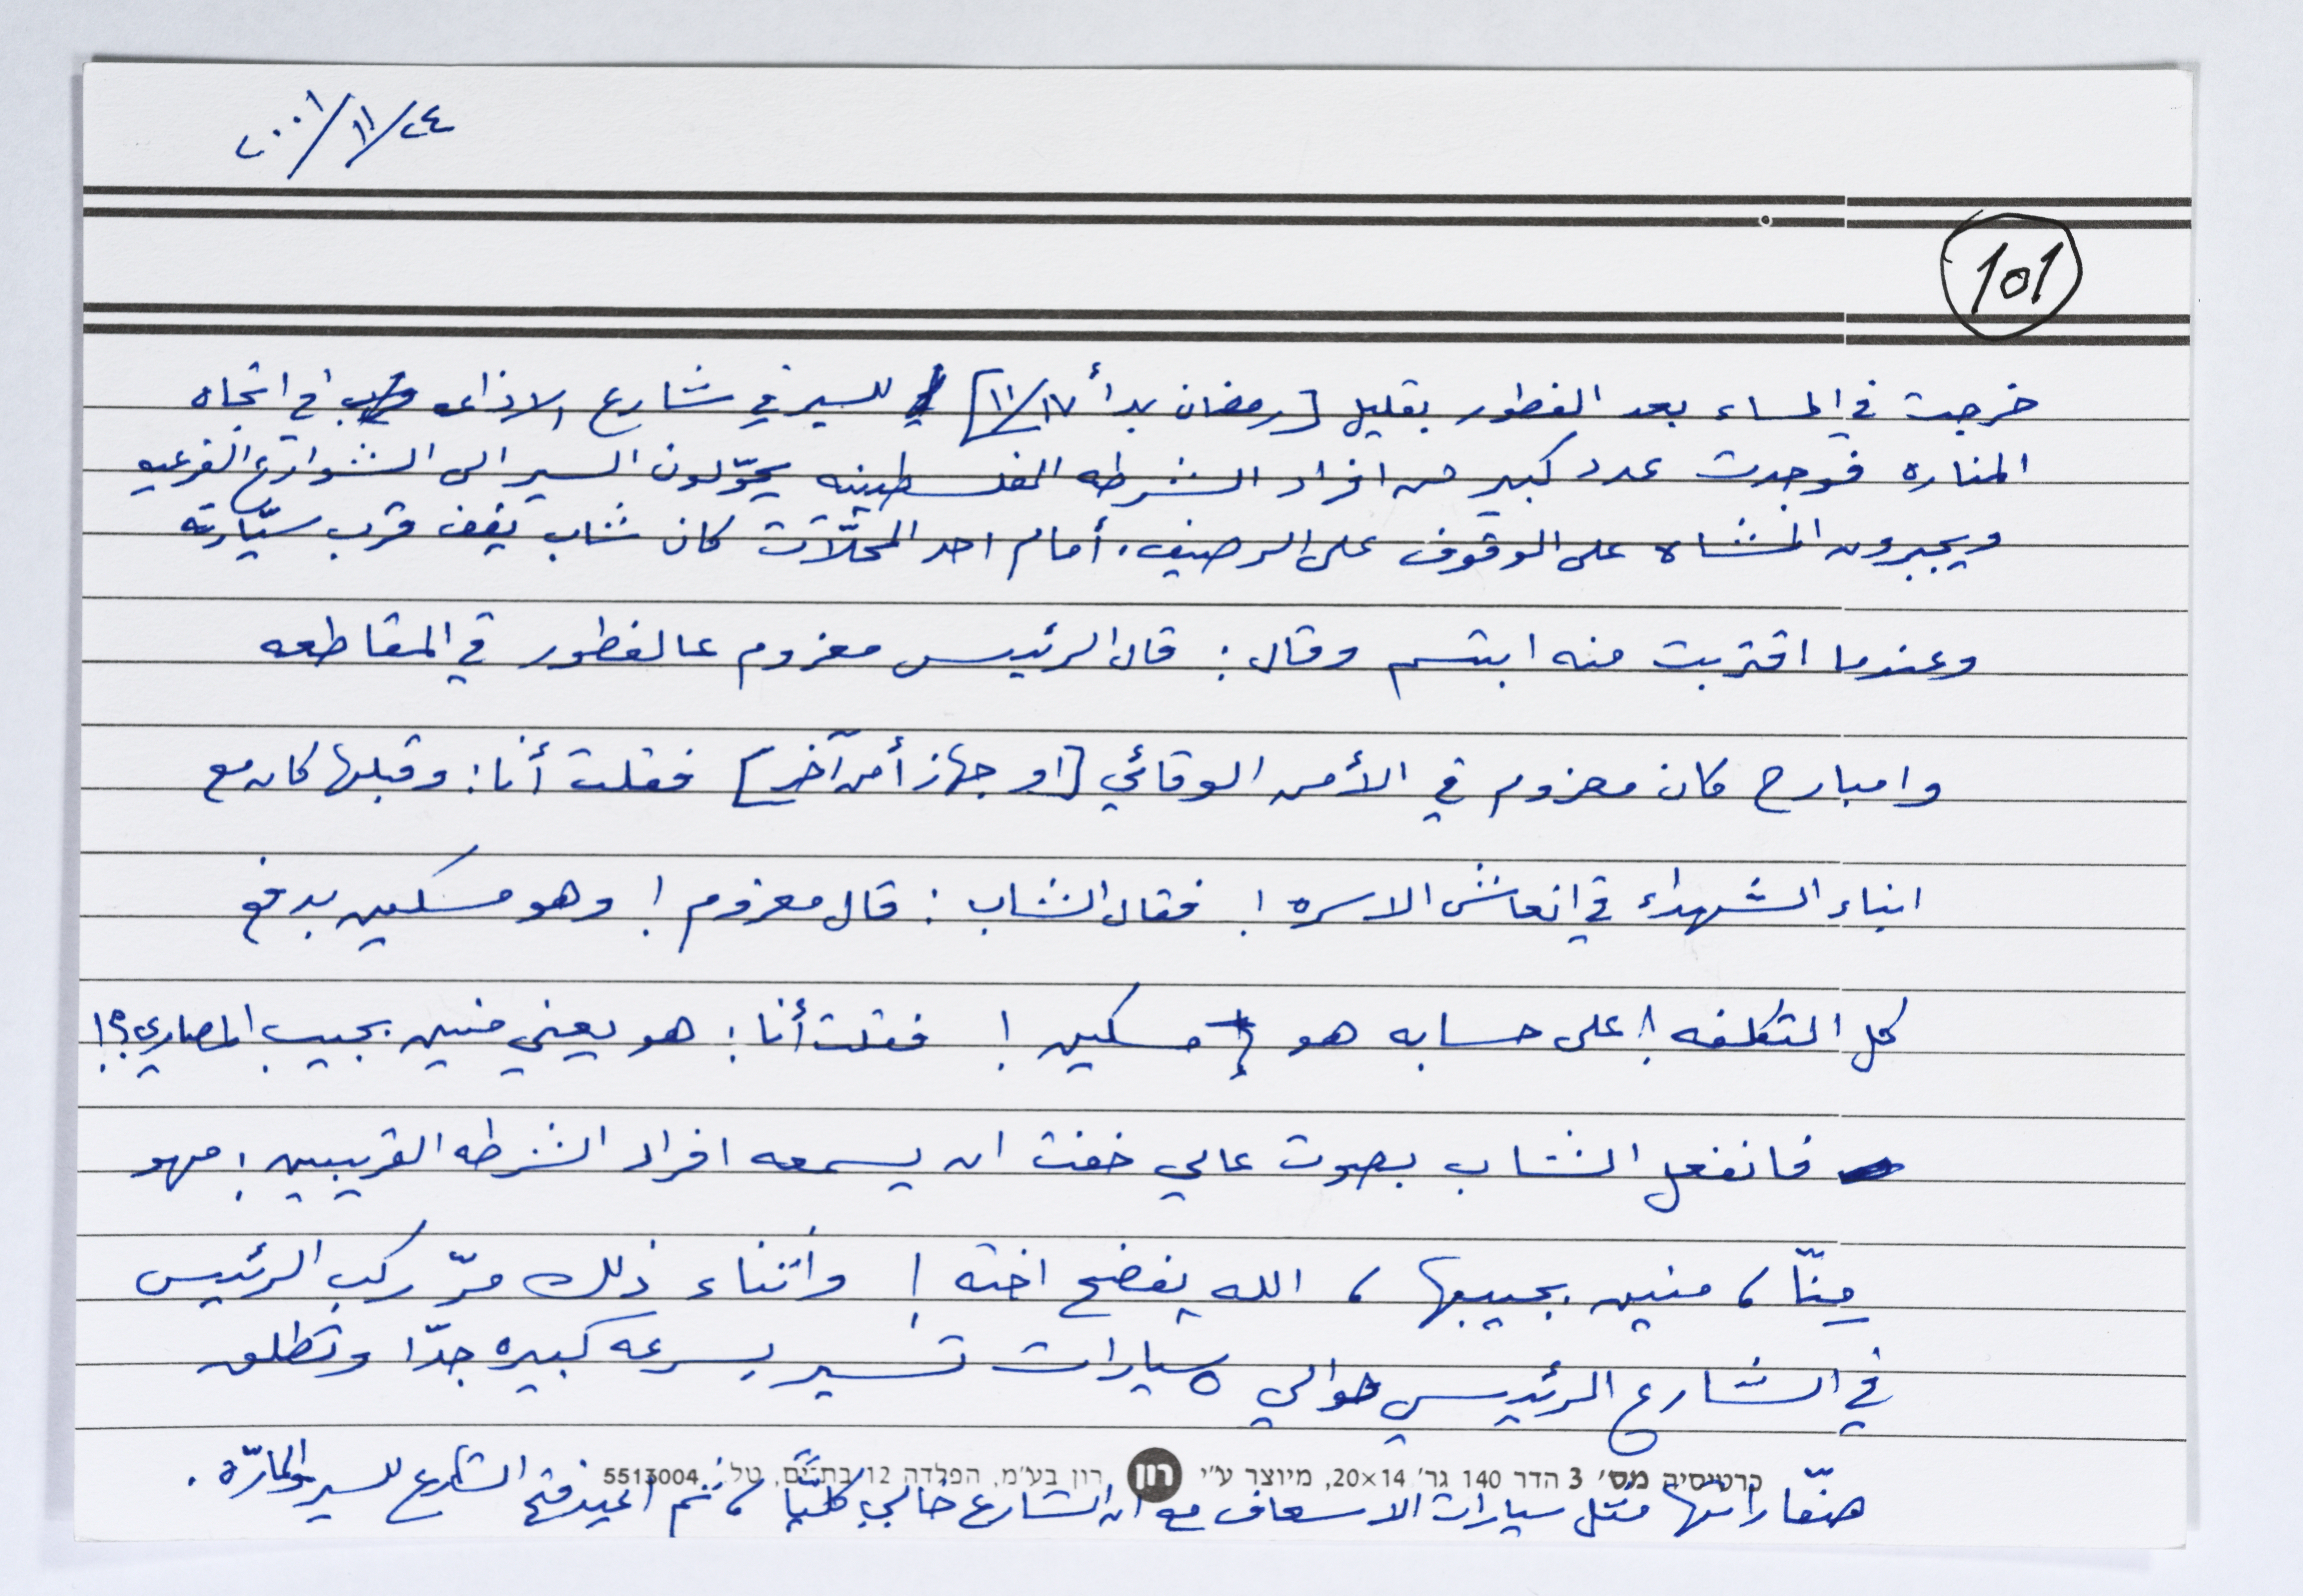 ٢٠٠١/١١/٢٤
101
خرجت في المساء بعد الفطور بقليل [رمضان بدأ ١١/١٧] للسير في شارع الاذاعه في اتجاه
المناره فوجدت عدد كبير من افراد الشرطه الفلسطينيه يحوّلون السير الى الشوارع الفرعيه
ويجبرون المشاه على الوقوف على الرصيف. أمام احد المحلّات كان شاب يقف قرب سيّارته
وعندما اقتربت منه ابتسم وقال: قال الرئيس معزوم عالفطور في المقاطعه
وامبارح كان معزوم في الأمن الوقائي [او جهاز أمن آخر] فقلت أنا: وقبلها كان مع
ابناء الشهداء في انعاش الاسره! فقال الشاب: قال معزوم! وهو مسكين بدفع
كل التكلفه! على حسابه هو مسكين! فقلت أنا: هو يعني منين بجيب المصاري؟!
فانفعل الشاب بصوت عالي خفت ان يسمعه افراد الشرطه القريبين: مهو
مِنّا، منين بجيبها، الله يفضح اخته! واثناء ذلك مرّ ركب الرئيس
في الشارع الرئيسي حوالي ٥ سيارات تسير بسرعه كبيره جدّا وتطلق
صفّاراتها مثل سيارات الاسعاف مع ان الشارع خالي كليّاً، ثم اعيد فتح الشارع للسير والمارّه.
כרטיסיה מס׳ 3 הדר 140 גר׳ 20×14, מיוצר ע״י רון רון בע״מ, הפלדה 12 בת־ים, טל. 5513004